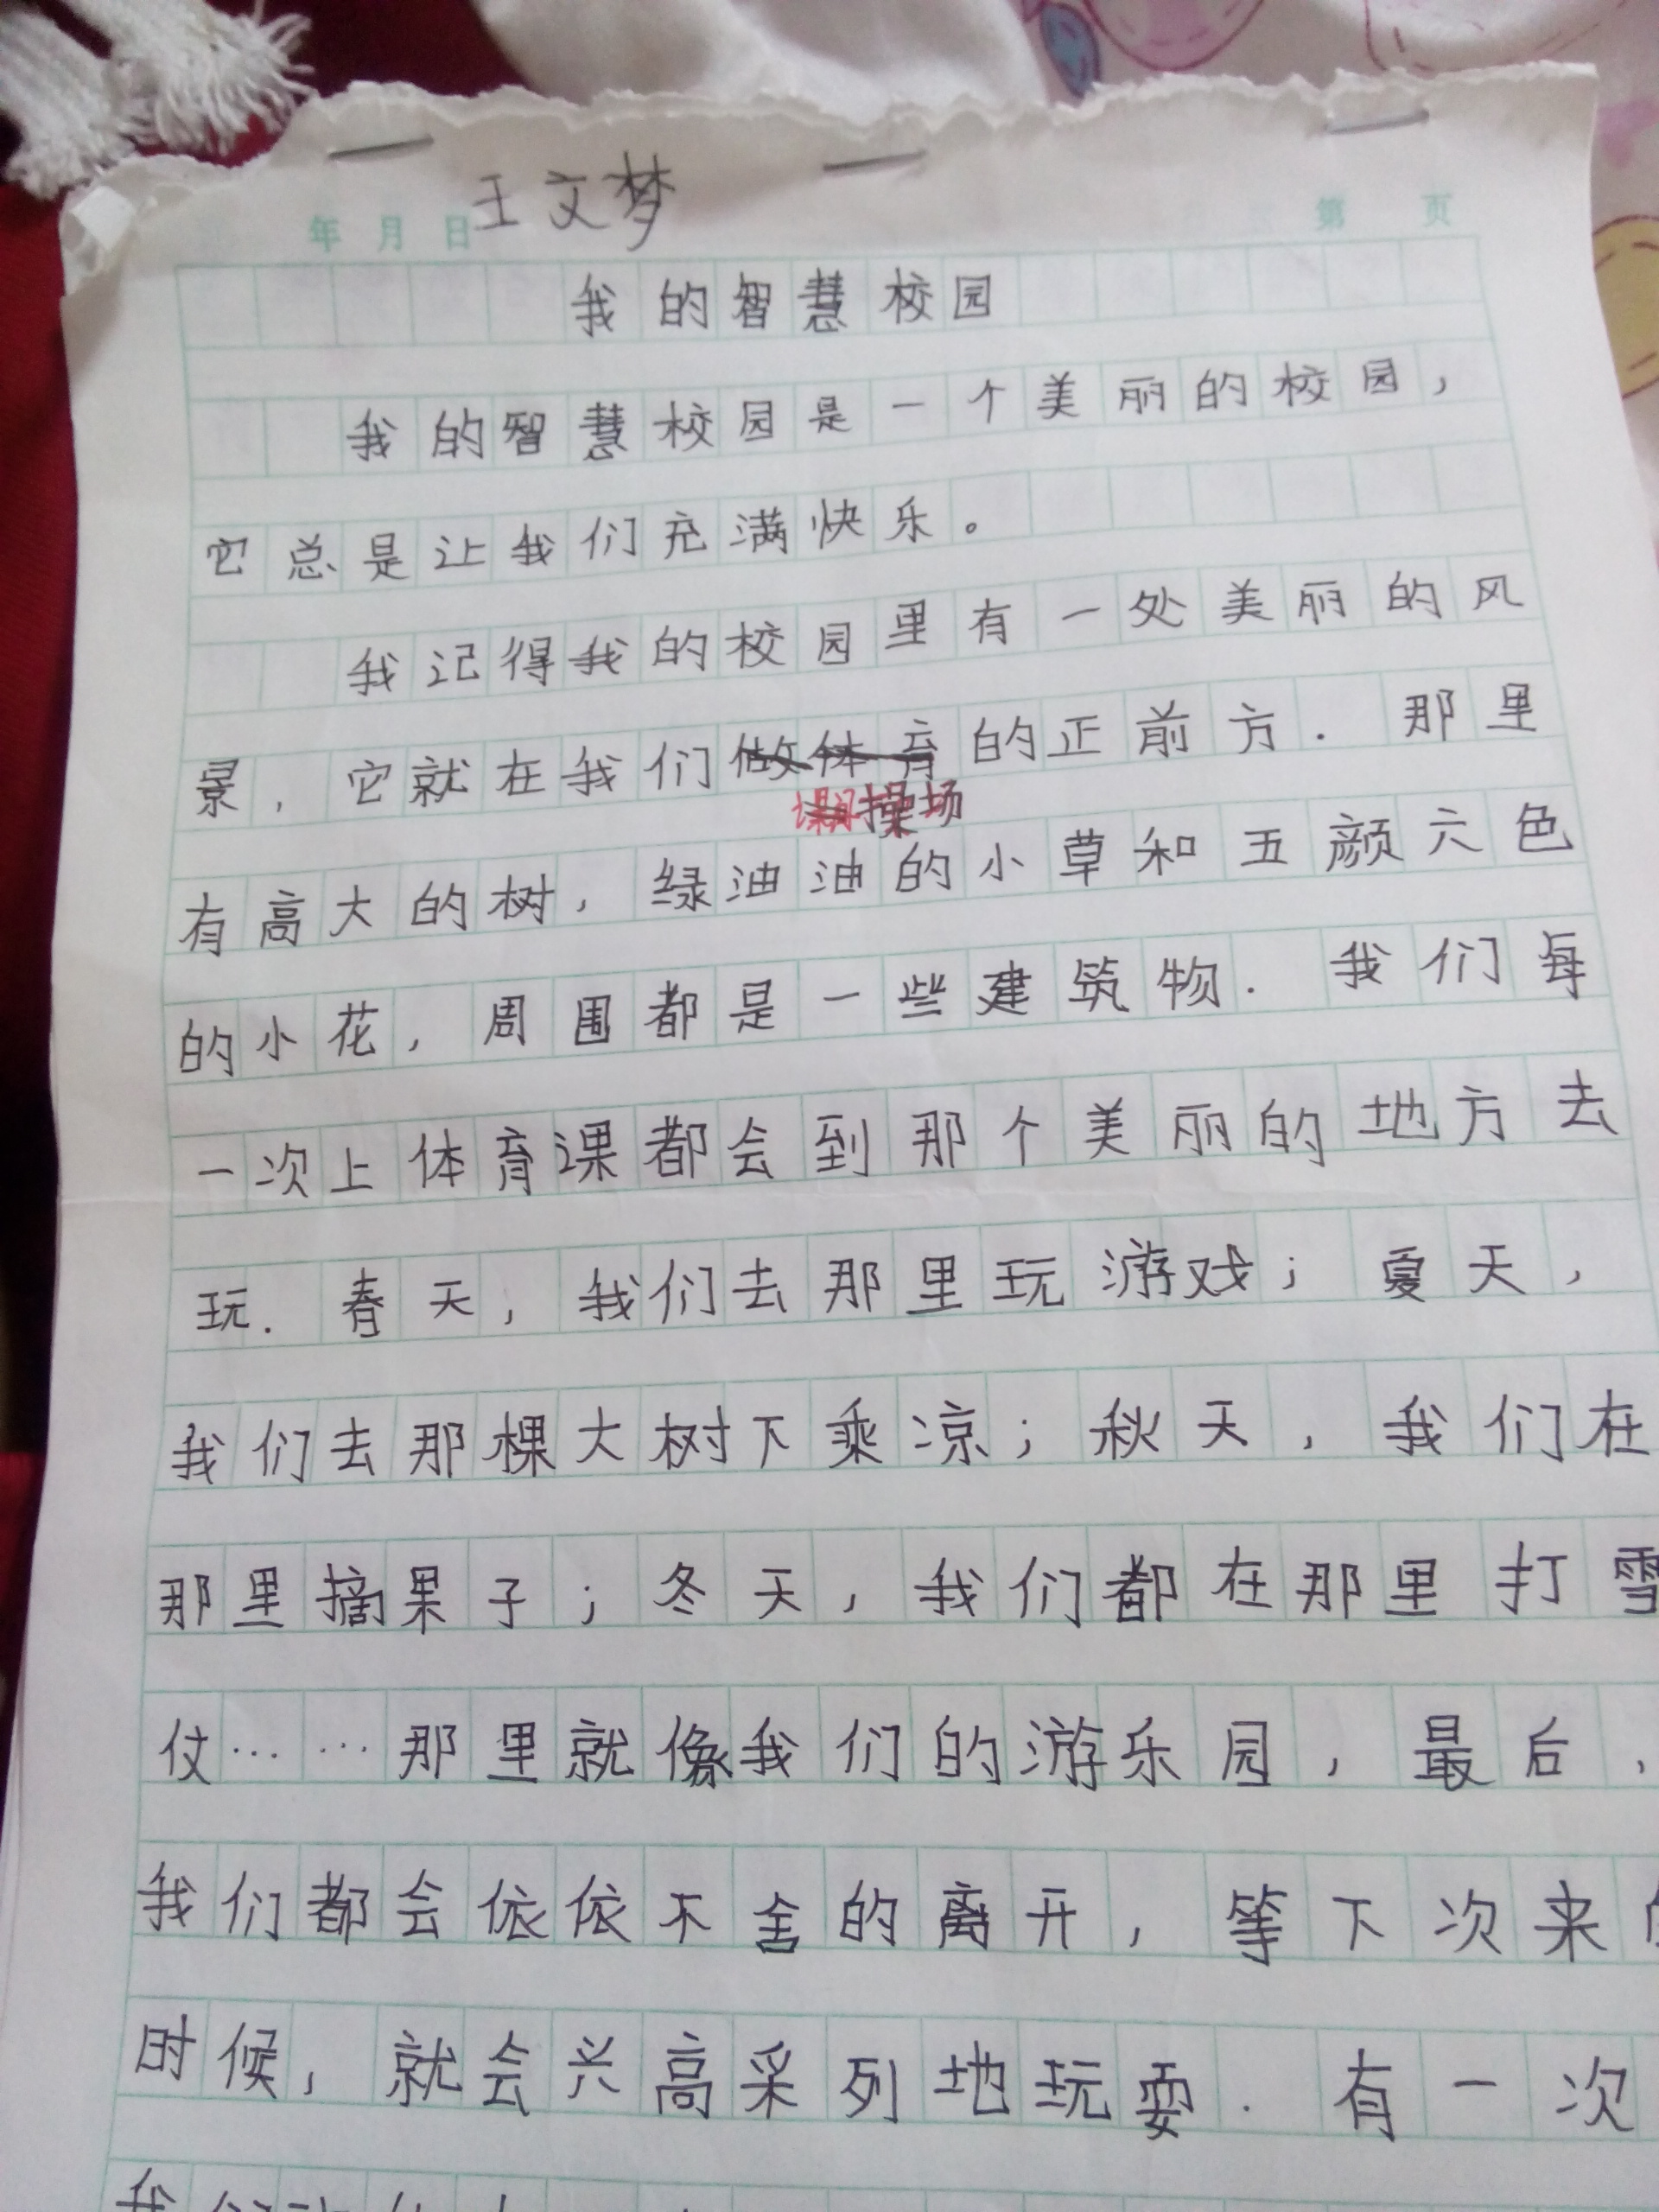 王文梦
年 月 日 第 页
我的智慧校园
我的智慧校园是一个美丽的校园，
它总是让我们充满快乐。
我记得我的校园里有一处美丽的风
景，它就在我们做体育的正前方．那里
课间操场
有高大的树，绿油油的小草和五颜六色
的小花，周围都是一些建筑物．我们每
一次上体育课都会到那个美丽的地方去
玩．春天，我们去那里玩游戏；夏天，
我们去那棵大树下乘凉；秋天，我们在
那里摘果子；冬天，我们都在那里打雪
仗……那里就像我们的游乐园，最后，
我们都会依依不舍的离开，等下次来
时候，就会兴高采列地玩耍．有一次
我们